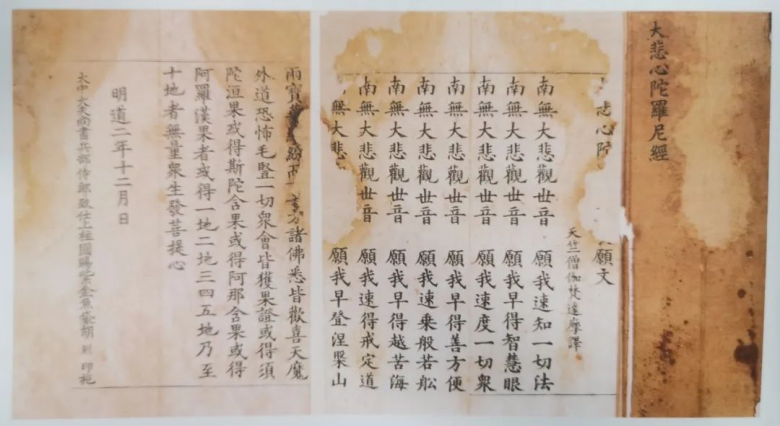 大悲心陀羅尼經
心陀
願文
天竺僧伽梵達摩譯
南無大悲觀世音 願我速知一切法
南無大悲觀世音 願我早得智慧眼
南無大悲觀世音 願我速度一切衆
南無大悲觀世音 願我早得善方便
南無大悲觀世音 願我速乘般若船
南無大悲觀世音 願我早得越苦海
南無大悲觀世音 願我速得戒定道
無大悲 願我早登涅槃山
雨寶 諸佛悉皆歡喜天魔
外道恐怖毛豎一切衆會皆獲果證或得須
陀洹果或得斯陀含果或得阿那含果或得
阿羅漢果者或得一地二地三四五地乃至
十地者無量衆生發菩提心
明道二年十二月日
太中大夫尚書兵部侍郎致仕上柱國賜紫金魚袋胡 印施